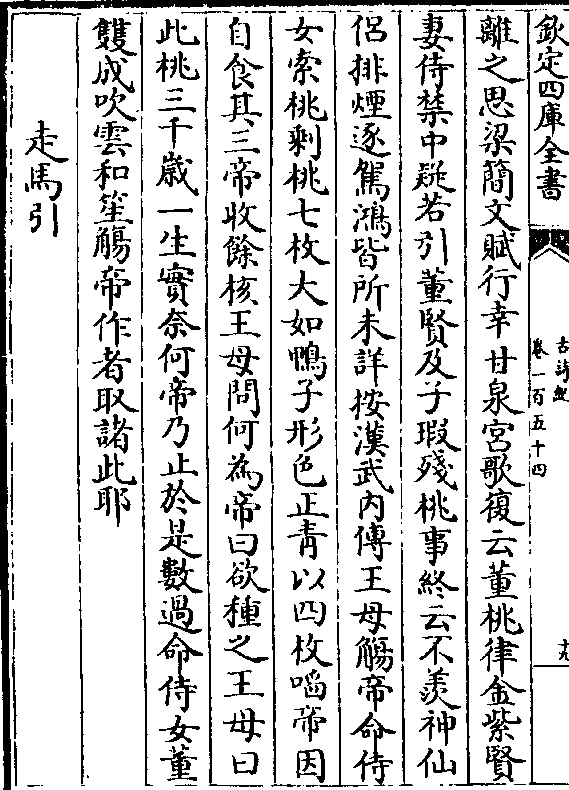 欽定四庫全書
古詩紀
卷一百五十四
離之思梁簡文賦行幸甘泉宮歌復云董桃律金紫賢
妻侍禁中疑若引董賢及子瑕殘桃事終云不羨神仙
侶排煙逐駕鴻皆所未詳按漢武內傳王母觴帝命侍
女索桃剩桃七枚大如鴨子形色正青以四枚啗帝因
自食其三帝收餘核王母問何為帝曰欲種之王母曰
此桃三千歲一生實奈何帝乃止於是數過命侍女董
雙成吹雲和笙觴帝作者取諸此耶
走馬引